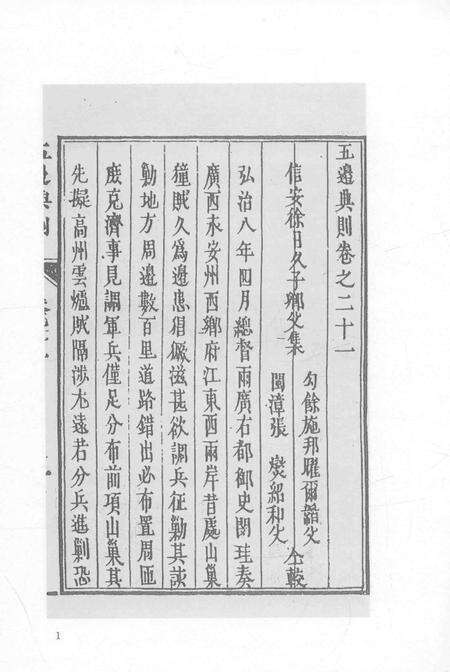 五邊典則卷之二十一
信安徐日久子卿父集
勾餘施邦曜爾韜父
閩漳張 燮紹和父 仝較
弘治八年四月總督兩廣右都御史閔珪奏
廣西永安州西鄉府江東西兩岸昔處山巢
獞賊久為邊患猖獗滋甚欲調兵征勦其談
動地方周邊數百里道路錯出必布置周匝
庶克濟事見調軍兵僅足分布前項山巢其
先擬高州雲爐賊隔涉尤遠若分兵進剿恐
五邊典則
1